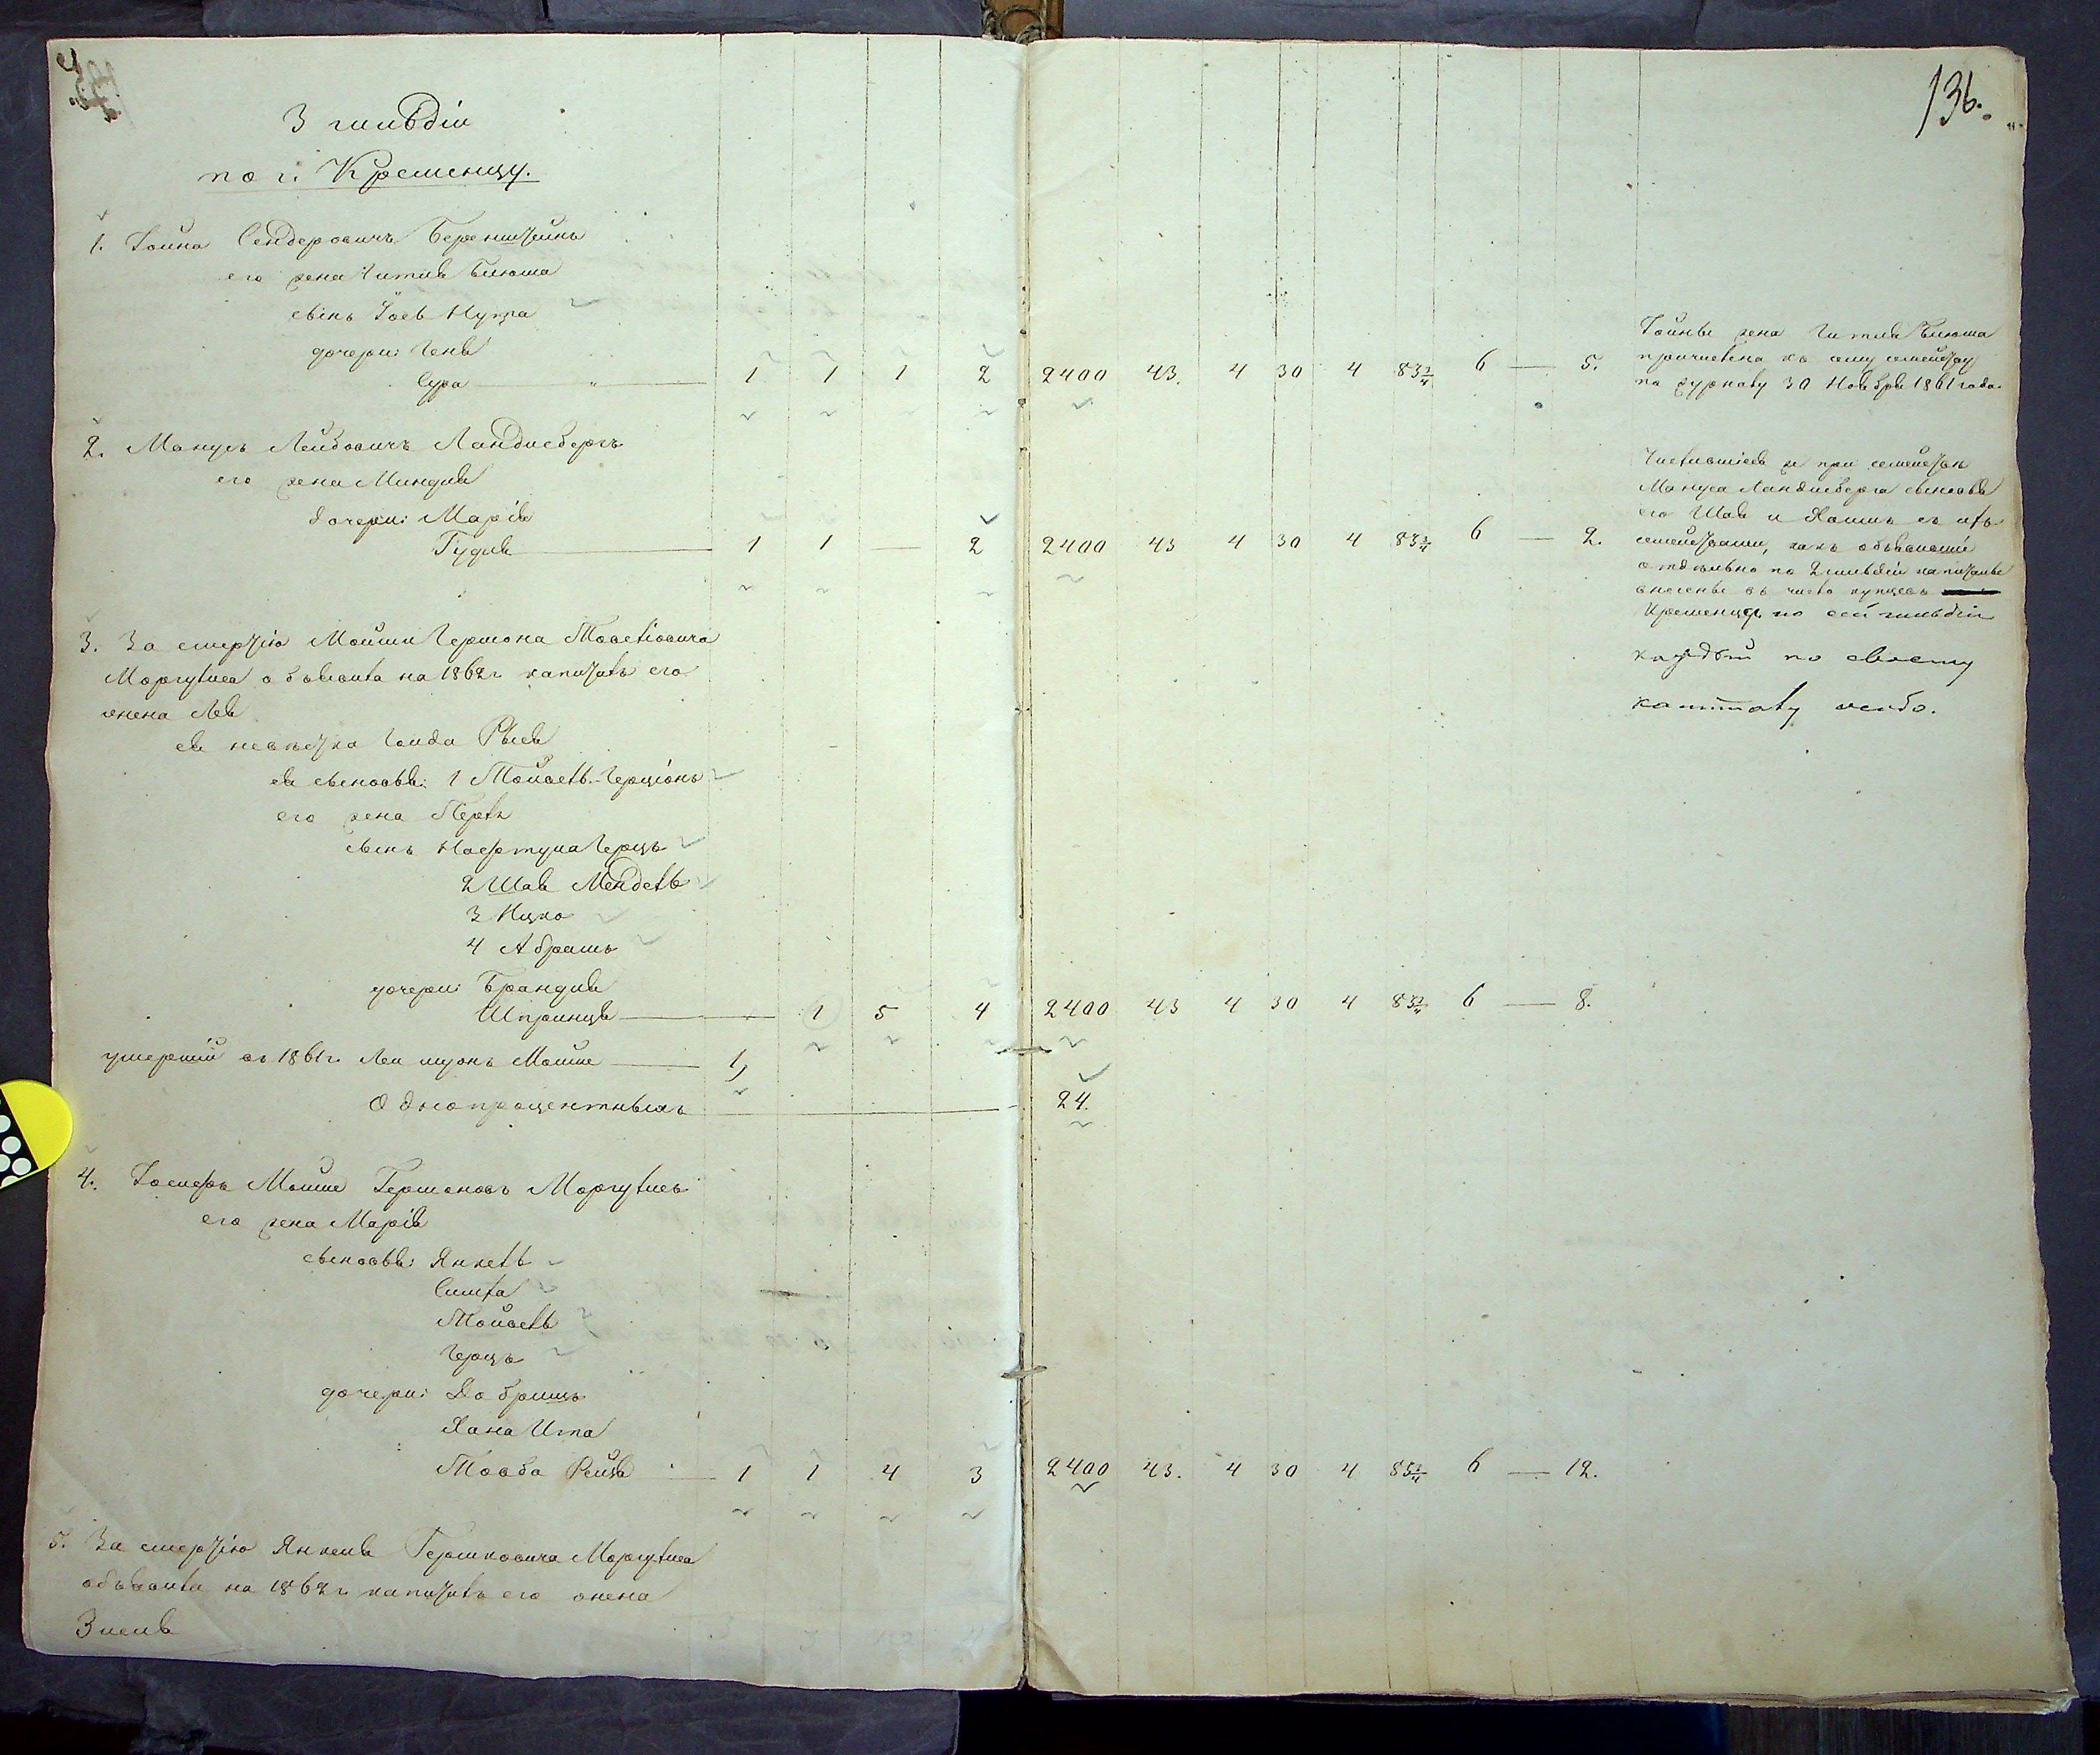 136.
3 гильдіи
по г. Кременцу.
1. Іойна Сендеровичъ Беренштейнъ
его жена Гитля Блюма
сынъ Іось Нухра
дочери: Геня
Сура — " — 1 1 1 2 2400 43. 4 30 4 83 3/4 6 — 5.
Іойны жена Гитля Блюма
причислена къ сему семейству
по журналу 30 Ноября 1861 года.
2. Манусъ Лейбовичъ Ландисбергъ
его жена Миндля
дочери: Марія
Гудля — 1 1 — 2 2400 43 4 30 4 83 3/4 6 — 2.
Числившіеся же при семействѣ
Мануса Ландисберга сыновья
его Шая и Хаимъ съ ихъ
семействами, какъ объявившіе
отдѣльно по 2 гильдіи капиталы
внесены въ число купцовъ
Кременца по сей гильдіи
каждый по своему
капиталу особо.
3. За смертію Мошки Гершона Мовшовича
Моргулиса объявила на 1862 г. капиталъ его
жена Лея
ея невѣстка Гинда Рыся
ея сыновья: 1 Мойсей-Герціонъ
его жена Перля
сынъ Герцъ
2 Шая Мендель
3 Ицко
4 Абрамъ
дочери: Брандля
Шпринця — 1 5 4 2400 43 4 30 4 83 3/4 6 — 8.
умершій въ 1861 г. Леи мужъ Мошко — 1,
Однопроцентныхъ — 24.
4. Іосифъ Мошко Гершоновъ Моргулисъ
его жена Марія
сыновья: Янкель
Симха
Мойсей
Герцъ
дочери: Добришъ
Хана Ита
Товба Рейзя — 1 1 4 3 2400 43. 4 30 4 83 3/4 6 — 12.
5. За смертію Янкеля Гершковича Моргулиса
объявила на 1862 г. капиталъ его жена
Зисля